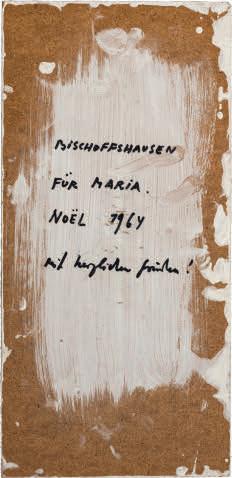 BISCHOFFSHAUSEN
FÜR MARIA.
NOËL 1964
mit herzlichen Grüßen!